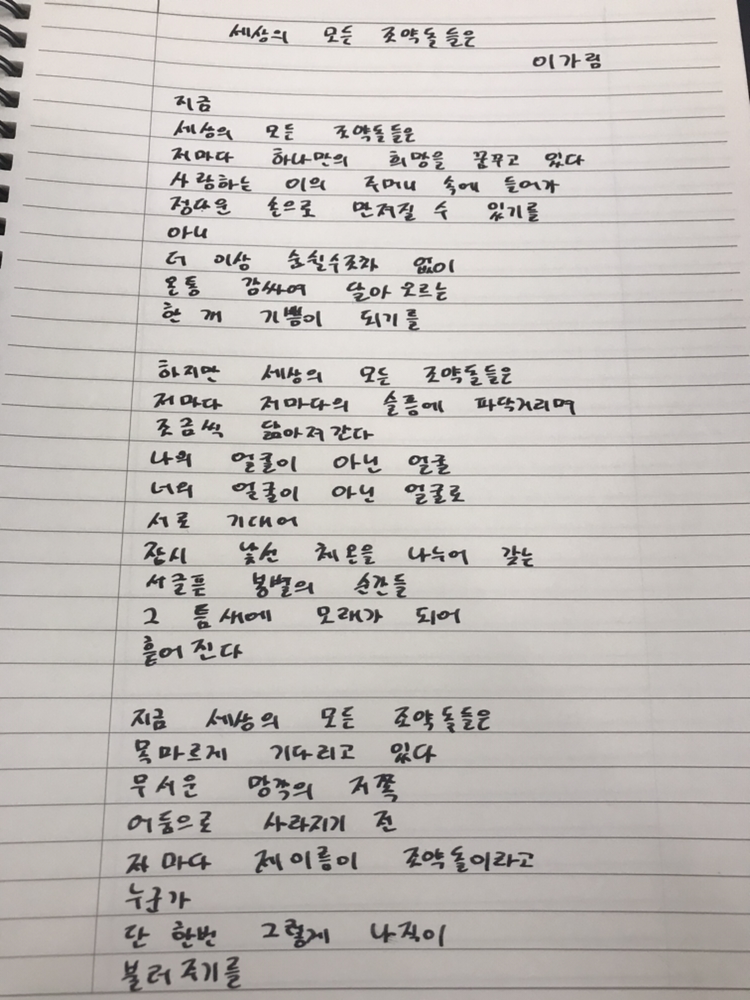 세상의 모든 조약돌들은
이가림
지금
세상의 모든 조약돌들은
저마다 하나만의 희망을 꿈꾸고 있다
사랑하는 이의 주머니 속에 들어가
정다운 손으로 만져질 수 있기를
아니
더 이상 움칠수조차 없이
온통 감싸여 달아오르는
한 개 기쁨이 되기를
하지만 세상의 모든 조약돌들은
저마다 저마다의 슬픔에 파닥거리며
조금씩 닳아져간다
나의 얼굴이 아닌 얼굴
너의 얼굴이 아닌 얼굴로
서로 기대어
잠시 낯선 체온을 나누어 갖는
서글픈 봉별의 순간들
그 틈새에 모래가 되어
흩어진다
지금 세상의 모든 조약돌들은
목마르게 기다리고 있다
무서운 망각의 저쪽
어둠으로 사라지기 전
저마다 제이름이 조약돌이라고
누군가
단 한번 그렇게 나직이
불러주기를